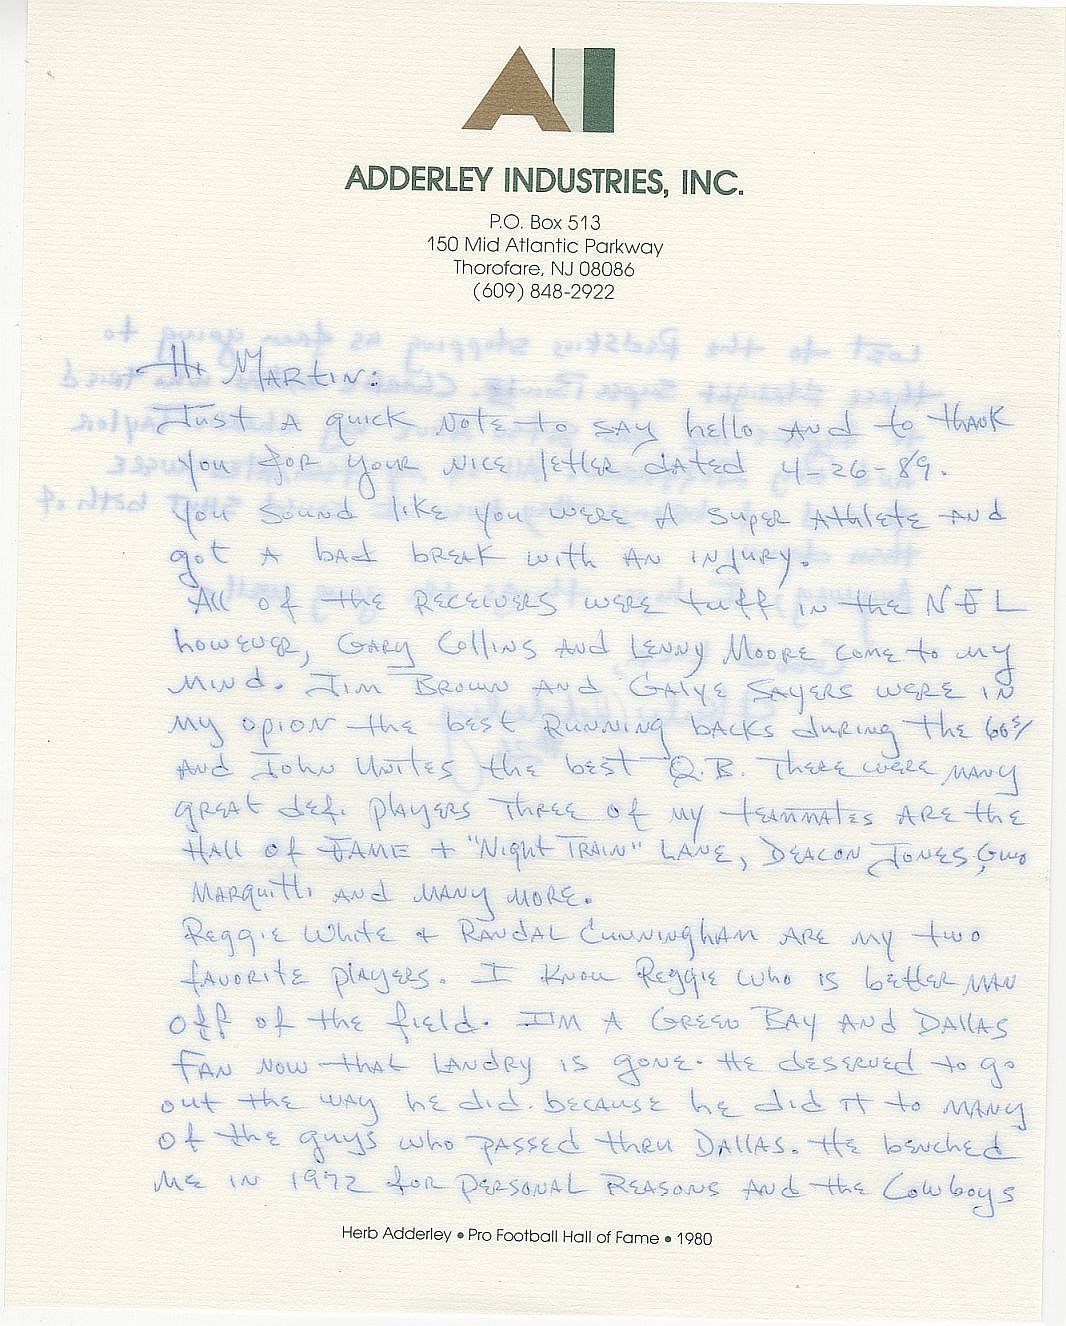 ADDERLEY INDUSTRIES, INC.
P.O. Box 513
150 Mid Atlantic Parkway
Thorofare, NJ 08086
(609) 848-2922
Hi Martin:
Just a quick note to say hello and to thank
you for your nice letter dated 4-26-89.
You sound like you were a super athlete and
got a bad break with an injury.
All of the receivers were tuff in the NFL
however, Gary Collins and Lenny Moore come to my
mind. Jim Brown and Galye Sayers were in
my opion the best running backs during the 60s/
and John Unites the best Q.B. There were many
great def. players three of my teammates are the
Hall of Fame + "Night Train" Lane, Deacon Jones, Gino
Marquitti and many more.
Reggie White + Randal Cunningham are my two
favorite players. I know Reggie who is better man
off of the field. I'm a Green Bay and Dallas
fan now that Landry is gone. He deserved to go
out the way he did. because he did it to many
of the guys who passed thru Dallas. He benched
me in 1972 for personal reasons and the Cowboys
Herb Adderley • Pro Football Hall of Fame • 1980